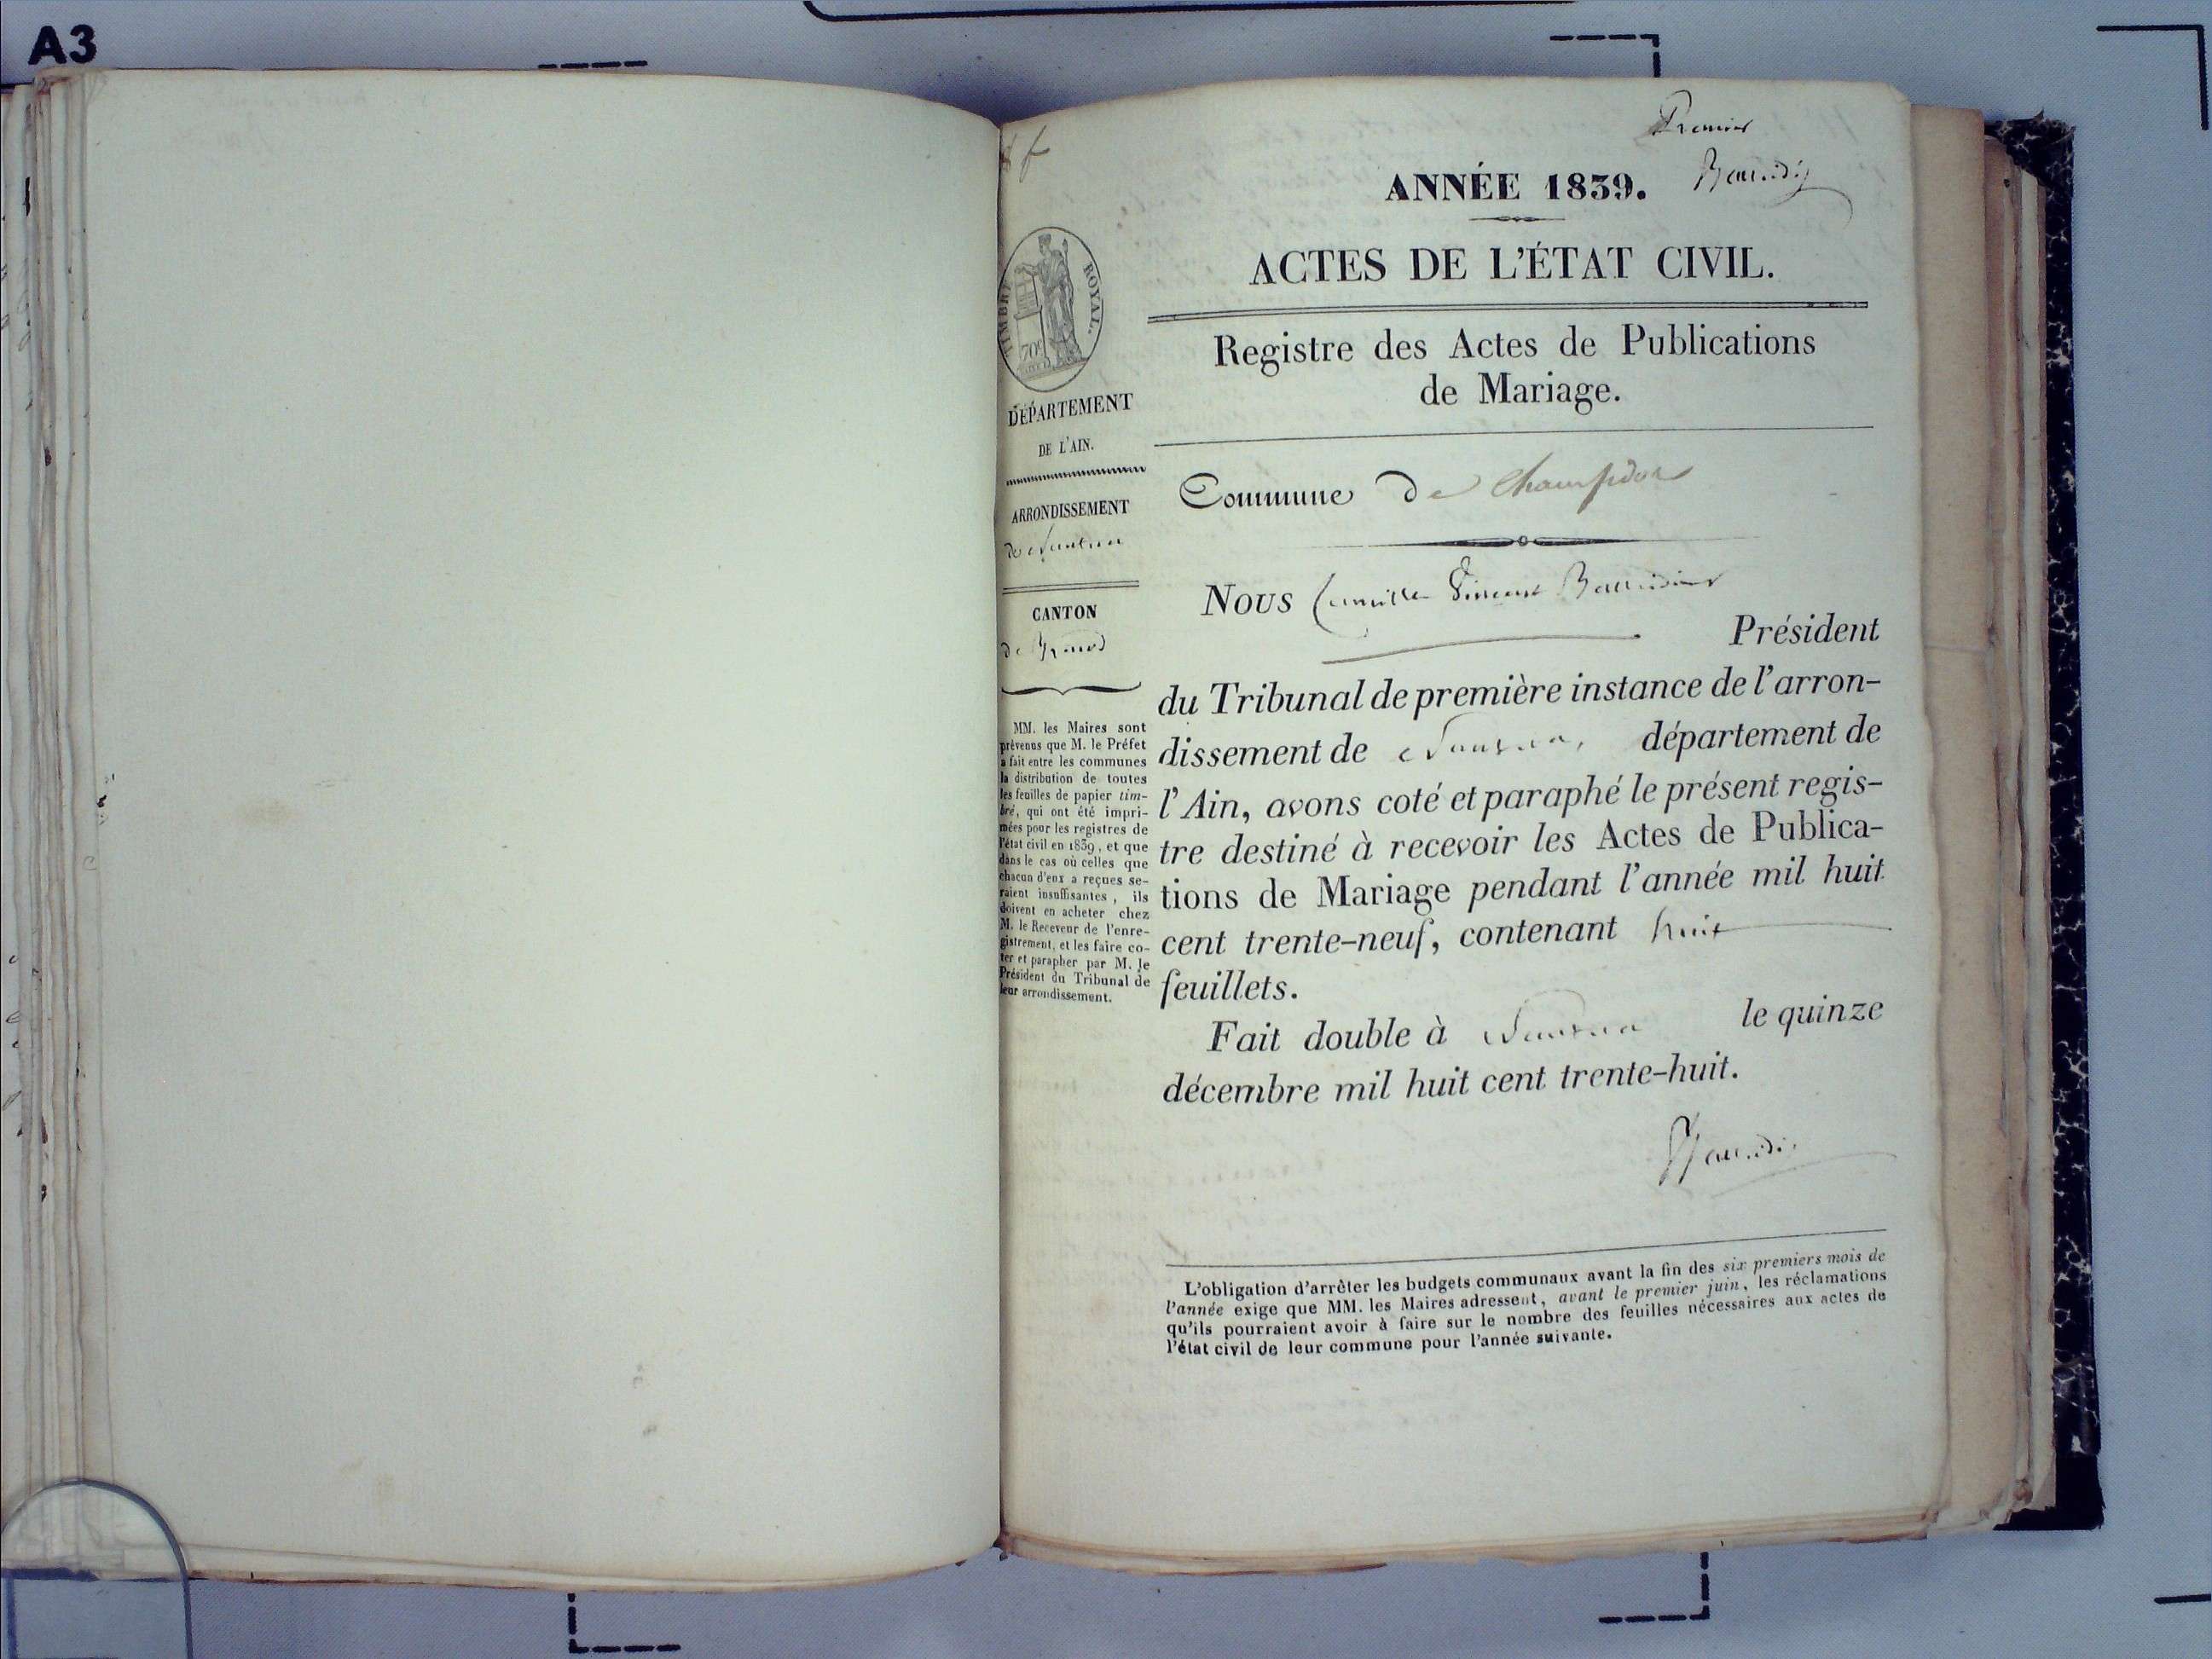 A3
Premier
ANNÉE 1839.
ACTES DE L'ÉTAT CIVIL.
TIMBRE ROYAL.
70c
Registre des Actes de Publications
de Mariage.
DÉPARTEMENT
DE L'AIN.
ARRONDISSEMENT
de Nantua
CANTON
de Brenod
MM. les Maires sont
prévenus que M. le Préfet
a fait entre les communes
la distribution de toutes
les feuilles de papier tim-
bré, qui ont été impri-
mées pour les registres de
l'état civil en 1839, et que
dans le cas où celles que
chacun d'eux a reçues se-
raient insuffisantes, ils
doivent en acheter chez
M. le Receveur de l'enre-
gistrement, et les faire co-
ter et parapher par M. le
Président du Tribunal de
leur arrondissement.
Commune de Champdor
Nous Camille Vincent
Président
du Tribunal de première instance de l'arron-
dissement de Nantua, département de
l'Ain, avons coté et paraphé le présent regis-
tre destiné à recevoir les Actes de Publica-
tions de Mariage pendant l'année mil huit
cent trente-neuf, contenant huit
feuillets.
Fait double à Nantua le quinze
décembre mil huit cent trente-huit.
L'obligation d'arrêter les budgets communaux avant la fin des six premiers mois de
l'année exige que MM. les Maires adressent, avant le premier juin, les réclamations
qu'ils pourraient avoir à faire sur le nombre des feuilles nécessaires aux actes de
l'état civil de leur commune pour l'année suivante.